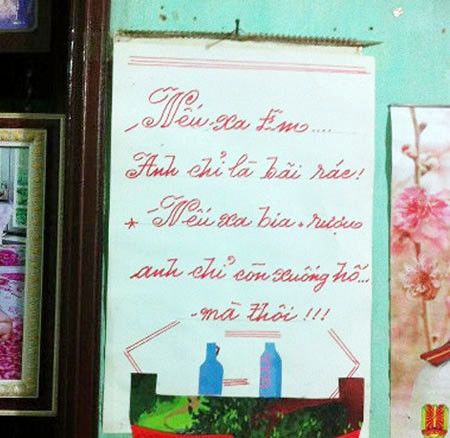 Nếu xa Em....
Anh chỉ là bãi rác!
* Nếu xa bia + rượu
anh chỉ còn xuống hố...
- mà thôi !!!